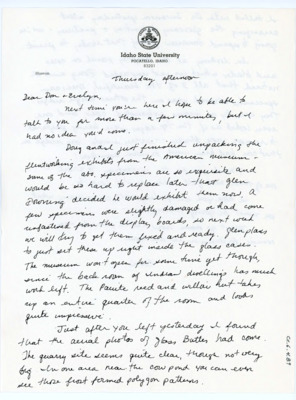 Idaho State University
POCATELLO, IDAHO
83201
Museum
Thursday afternoon
Dear Don & Evelyn,
Next time you're here I hope to be able to
talk to you for more than a few minutes, but I
had no idea you'd come.
Doug and I just finished unpacking the
flintworking exhibits from the American museum -
Some of the obs. specimens are so exquisite and
would be so hard to replace later that Glen
decided he would exhibit them now. A
few specimens were slightly damaged or had come
unfastened from the display boards, so next week
we will try to get them fixed and ready. Glen plans
to just set them up right inside the glass cases.
The museum won't open for some time yet though,
since the back room of Indian dwellings has much
work left. The Paiute reed and willow hut takes
up an entire quarter of the room and looks
quite impressive.
Just after you left yesterday I found
that the aerial photos of Glass Buttes had come.
The quarry site seems quite clear, though not very
big. In one area near the cow pond you can even
see those frost formed polygon patterns.